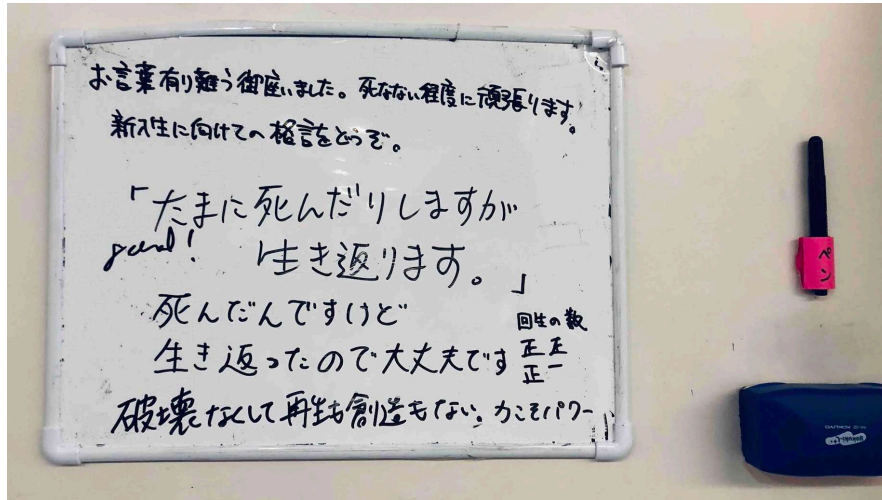 お言葉有り難う御座いました。死なない程度に頑張ります。
新入生に向けての格言をどうぞ。
「たまに死んだりしますが
good!
生き返ります。」
死んだんですけど
生き返ったので大丈夫です
回生の数
正正
正一
破壊なくして再生も創造もない。力こそパワー
ペン